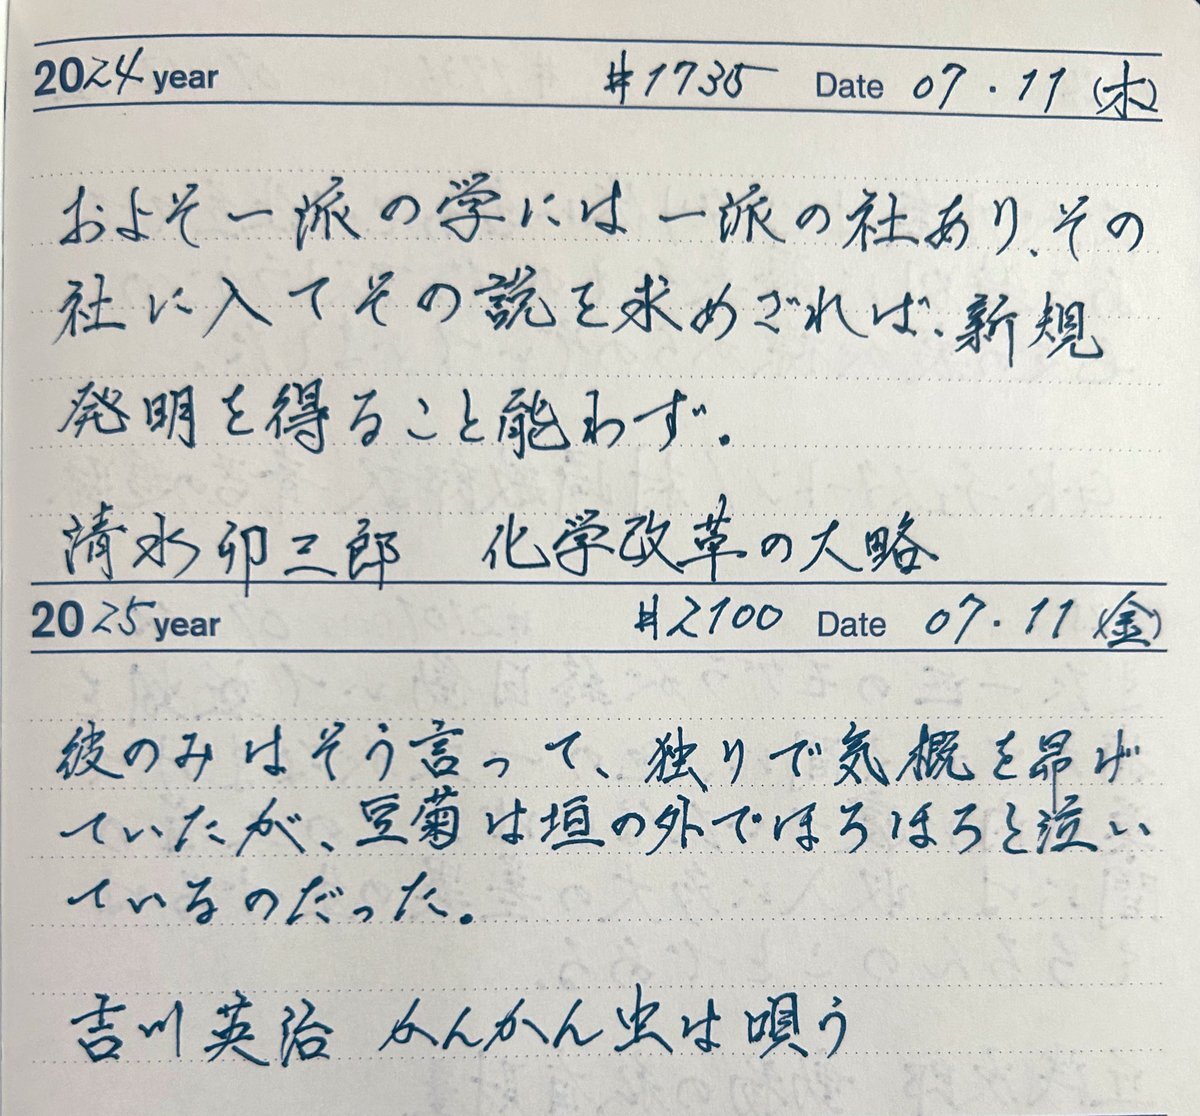 2024 year #1735 Date 07.11 (木)
およそ一派の学には一派の社あり、その
社に入てその説を求めざれば、新規
発明を得ること能わず。
清水卯三郎 化学改革の大略
2025 year #2100 Date 07.11 (金)
彼のみはそう言って、独りで気概を昂げ
ていたが、豆菊は垣の外でほろほろと泣い
ているのだった。
吉川英治 かんかん虫は唄う